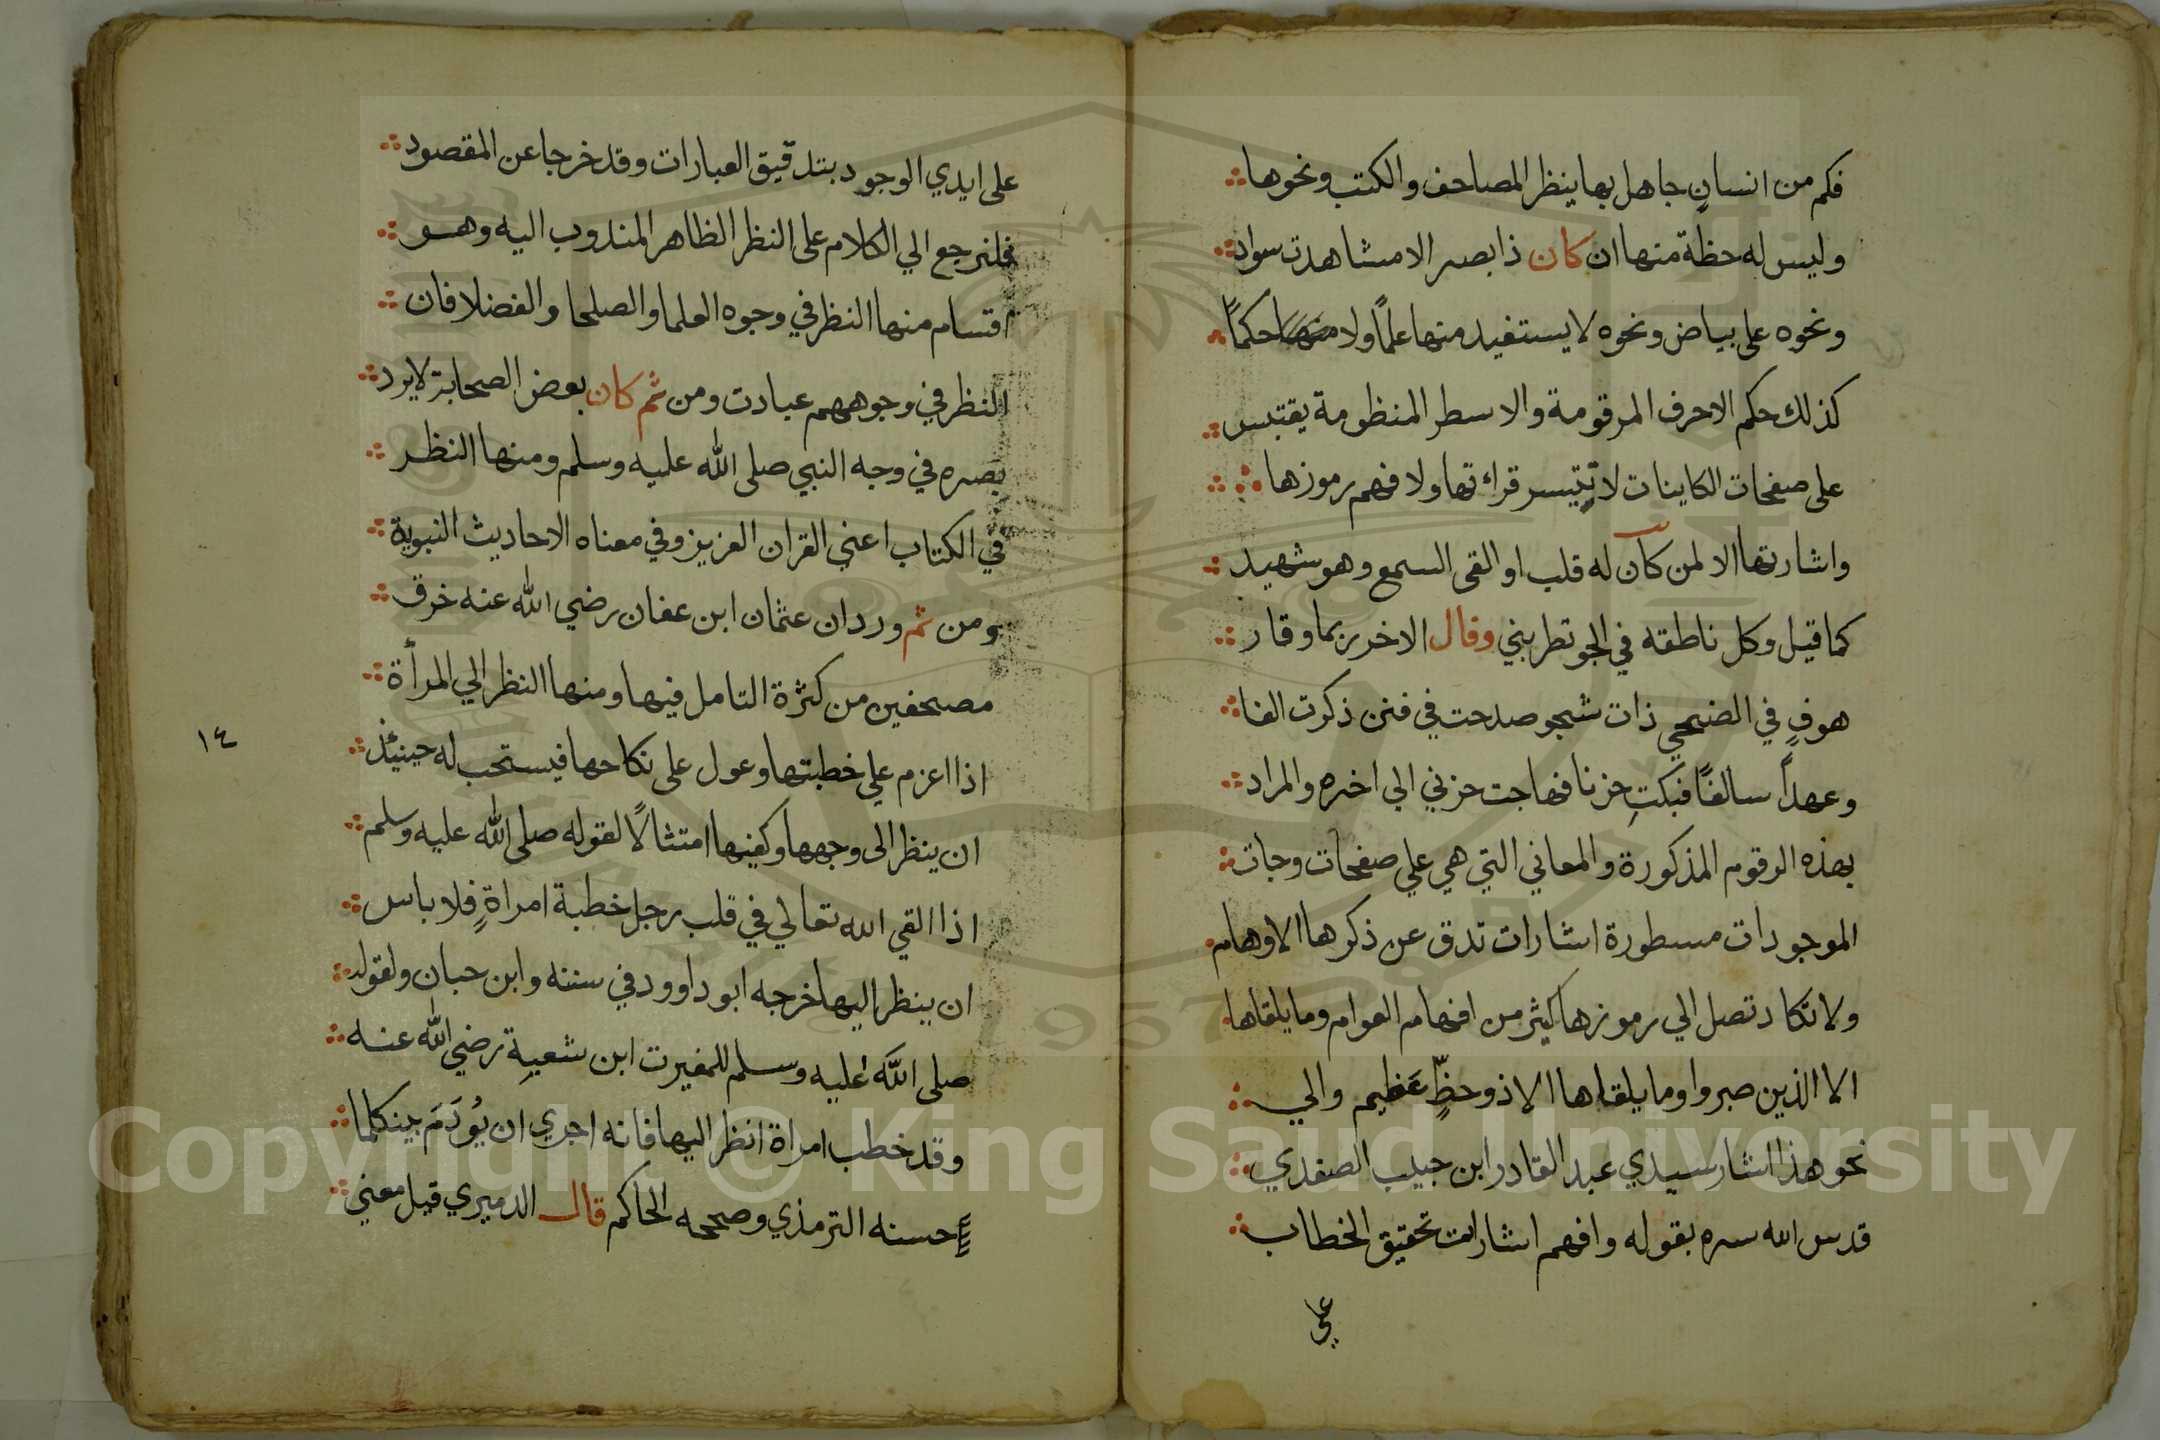 فكم من انسانٍ جاهل بها ينظر المصاحف والكتب ونحوها
وليس له حظة منها ان كان ذا بصر الا مشاهدت سواد
ونحوه على بياض ونحوه لا يستفيد منها علمًا ولا منها حكمًا
كذلك حكم الاحرف المرقومة والاسطر المنظومة يقتبس
على صفحات الكاينات لا تتيسر قراءتها ولا فهم رموزها
واشارتها الا لمن كان له قلب او القى السمع وهو شهيد
كما قيل وكل ناطقه في الجو تطربني وقال الاخر ربما وقار
هوفٍ في الضحي ذات شجو صدحت في فنن ذكرت الفا
وعهداً سالفًا فبكتِ حزنا فهاجت حزني الي اخره والمراد
بهذه الرقوم المذكورة والمعاني التي هي علي صفحات وجات
الموجودات مسطورة اشارات تدق عن ذكرها الاوهام
ولا تكاد تصل الي رموزها كثير من افهام العوام وما يلقاها
الا الذين صبروا وما يلقاها الا ذو حظٍّ عظيم والي
نحو هذا اشار سيدي عبد القادر ابن حبيب الصفدي
قدس الله سره بقوله وافهم اشارات تحقيق الخطاب
علي
على ايدي الوجود بتدقيق العبارات وقد خرجنا عن المقصود
فلنرجع الي الكلام على النظر الظاهر المندوب اليه وهو
اقسام منها النظر في وجوه العلما والصلحا والفضلا فان
النظر في وجوههم عبادت ومن ثم كان بعض الصحابة لا يرد
بصره في وجه النبي صلى الله عليه وسلم ومنها النظر
في الكتاب اعني القران العزيز وفي معناه الاحاديث النبوية
ومن ثم ورد ان عثمان ابن عفان رضي الله عنه خرق
مصحفين من كثرة التامل فيها ومنها النظر الي المرأة
اذا اعزم علي خطبتها وعول على نكاحها فيستحب له حينيئذ
ان ينظر الى وجهها وكفيها امتثالًا لقوله صلى الله عليه وسلم
اذا القي الله تعالي في قلب رجل خطبة امراةٍ فلا باس
ان ينظر اليها خرجه ابو داوود في سننه وابن حبان ولقوله
صلى الله عليه وسلم للمغيرت ابن شعبة رضي الله عنه
وقد خطب امراة انظر اليها فانه اجري ان يُودَمَ بينكما
حسنه الترمذي وصححه الحاكم قال الدميري قيل معني
١٤
Copyright © King Saud University
1957